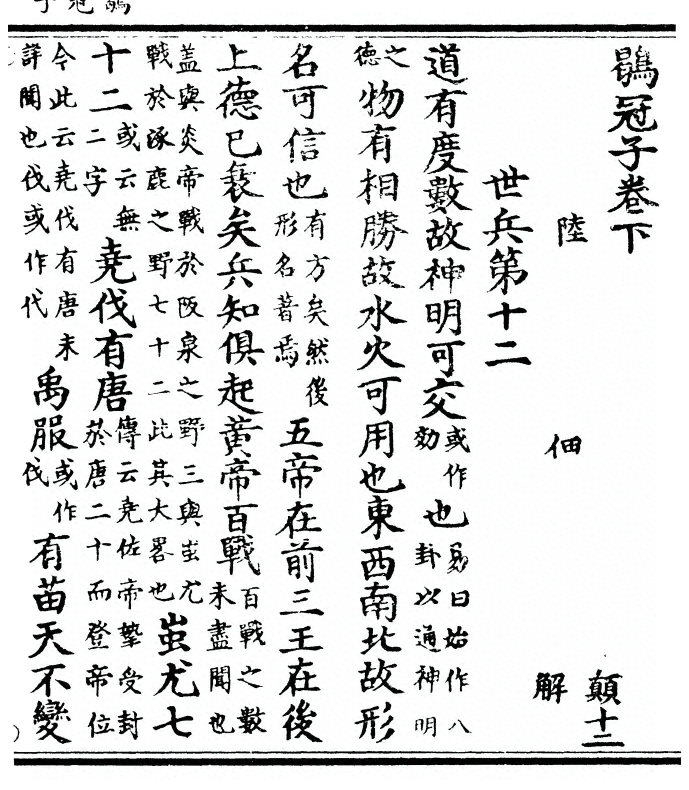 鶡冠子卷下
顛十二
陸佃解
世兵第十二
道有度數故神明可交或作効也易曰始作八卦以通神明
之德物有相勝故水火可用也東西南北故形
名可信也有方矣然後形名著焉五帝在前三王在後
上德已衰矣兵知俱起黄帝百戰百戰之數未盡聞也
盖與炎帝戰於阪泉之野三與蚩尤戰於涿鹿之野七十二此其大畧也蚩尤七
十二或云無二字堯伐有唐傳云堯佐帝摯受封於唐二十而登帝位
今此云堯伐有唐未詳聞也伐或作代禹服或作伐有苗天不變